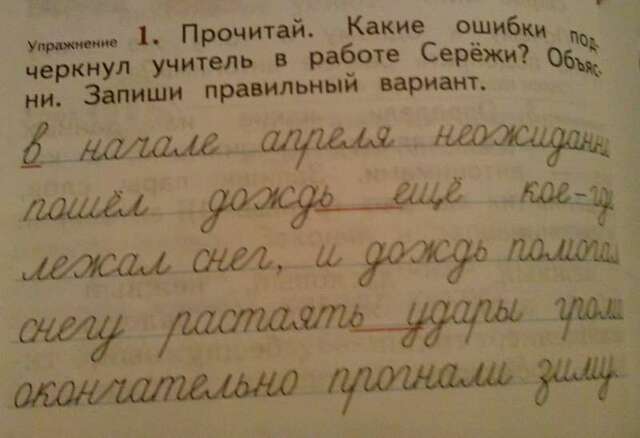 Упражнение 1. Прочитай. Какие ошибки под-
черкнул учитель в работе Серёжи? Объяс-
ни. Запиши правильный вариант.
в начале апреля неожиданно
пошёл дождь ещё кое-где
лежал снег, и дождь помогал
снегу растаять удары грома
окончательно прогнали зиму.